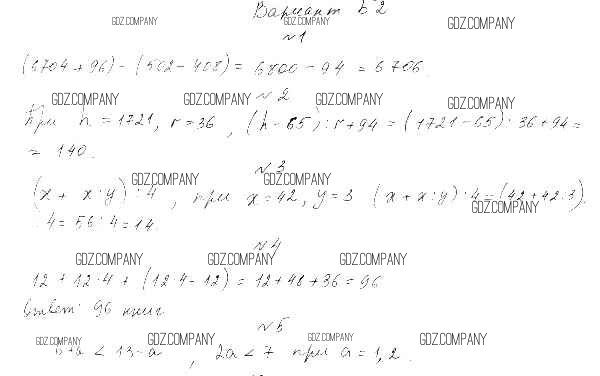 Вариант Б2
GDZ.COMPANY GDZ.COMPANY GDZ.COMPANY
№1
(6704+96)-(502-408)= 6800-94 = 6706.
GDZ.COMPANY GDZ.COMPANY №2 GDZ.COMPANY GDZ.COMPANY
При n=1721, r=36, (n-65):r+94=(1721-65):36+94=
= 140.
№3
GDZ.COMPANY GDZ.COMPANY
(x+x:y):4, при x=42, y=3 (x+x:y):4=(42+42:3):
GDZ.COMPANY
:4=56:4=14.
№4
GDZ.COMPANY GDZ.COMPANY GDZ.COMPANY
12+12·4+(12·4-12)=12+48+36=96
Ответ: 96 книг
№5
GDZ.COMPANY GDZ.COMPANY GDZ.COMPANY GDZ.COMPANY
< 13-a, 2a<7 при a=1,2.